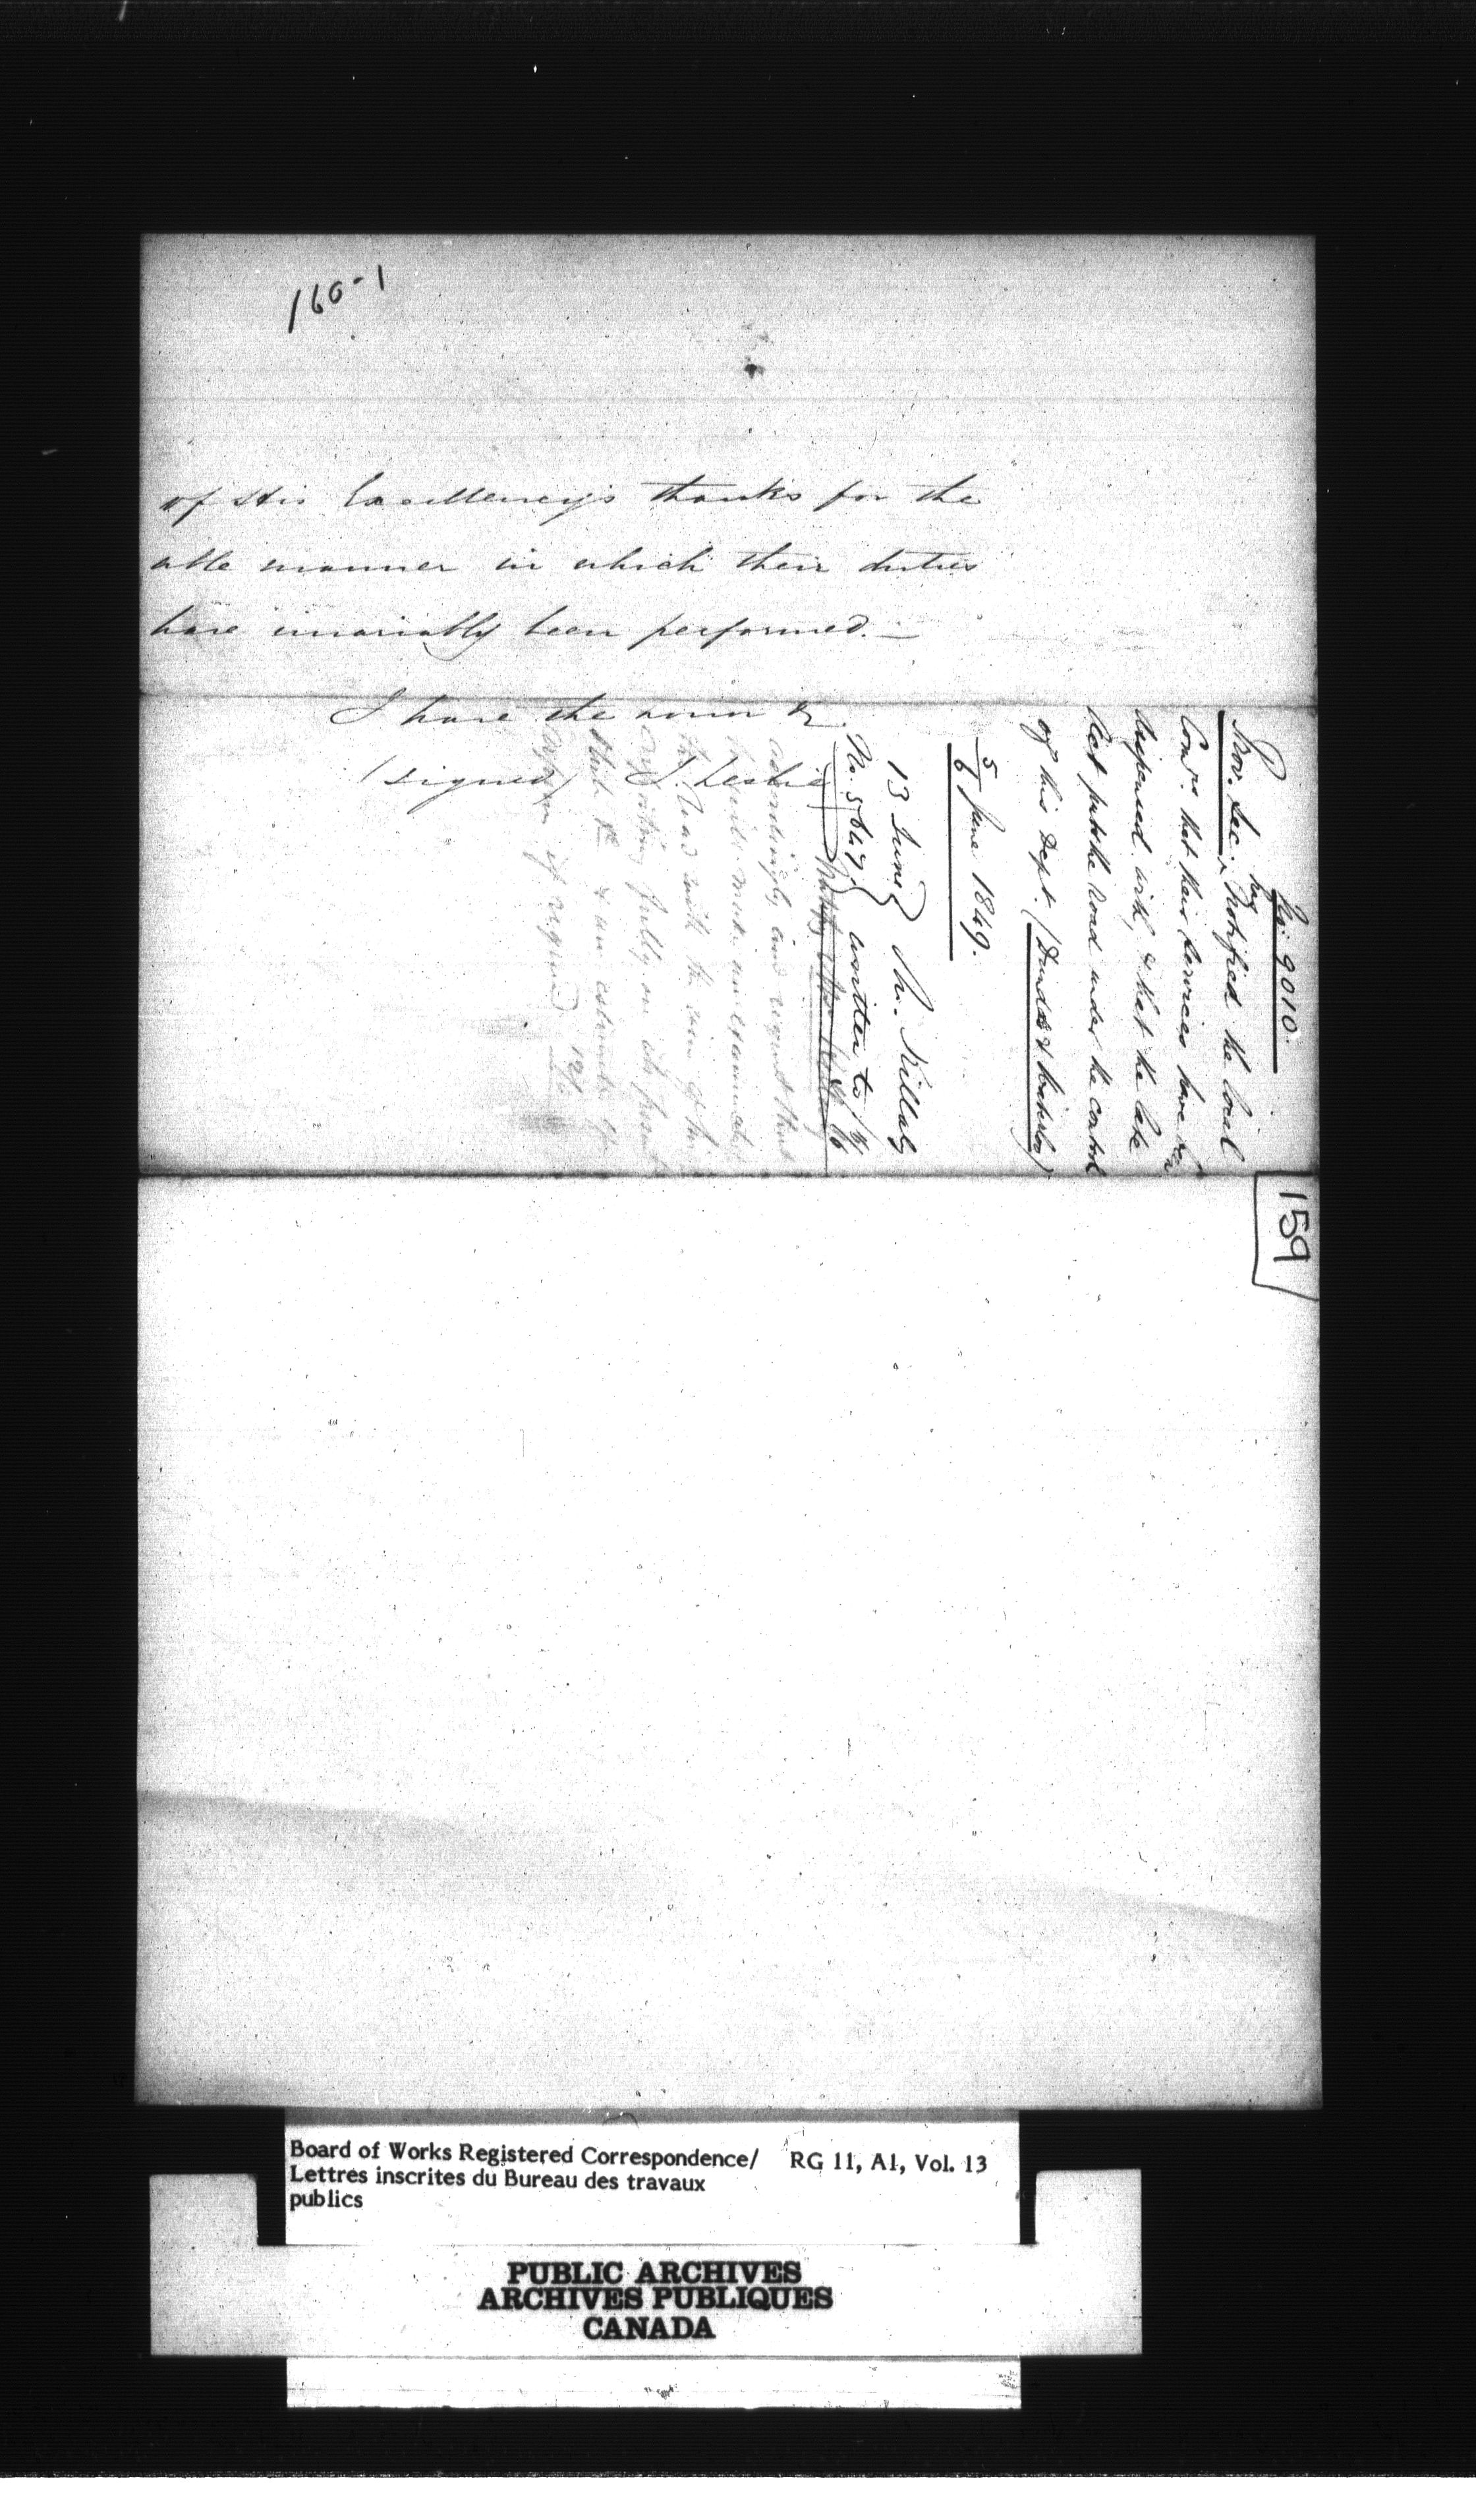 160-1
of His Excellency's thanks for the
able manner in which their duties
have invariably been performed. —
I have the honor &c.
(signed) J. Leslie
No. 9010.
Prov. Sec. has Notified the local
Comrs. that their services have been
dispensed with, & that the late
Act puts the road under the control
of this Dept. (Dundas & Waterloo)
5/6 June 1849.
13 June } Mr. Killaly
No. 5647 } written to
accordingly and request that
he will make an examination
the road with the view of his
reporting fully on its present
state & an estimate of
repairs if required
159
Board of Works Registered Correspondence/ RG 11, A1, Vol. 13
Lettres inscrites du Bureau des travaux
publics
PUBLIC ARCHIVES
ARCHIVES PUBLIQUES
CANADA